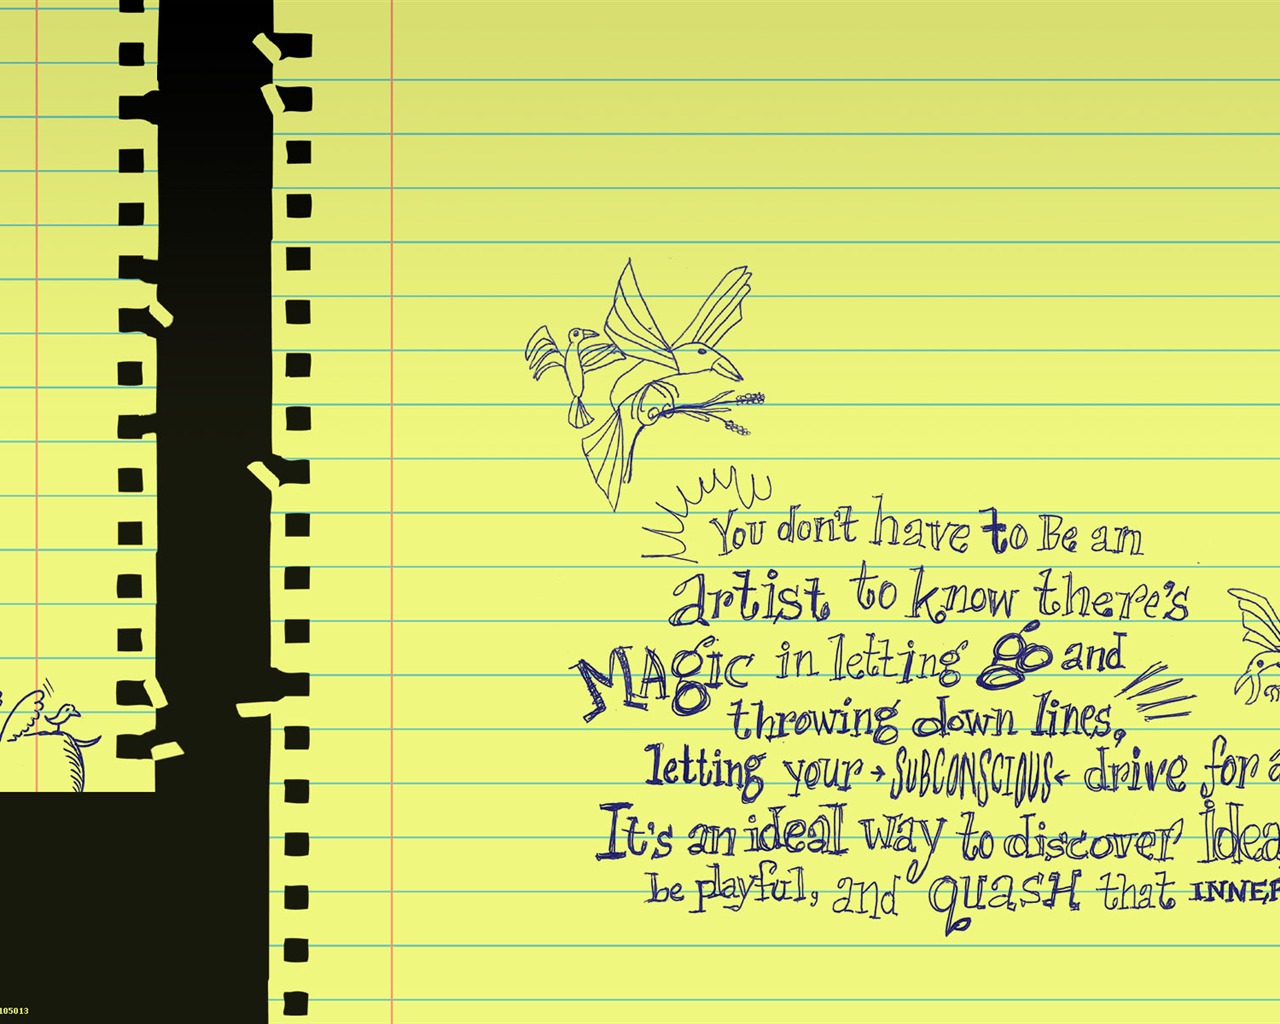 You don't have to Be an
artist to know there's
MAgic in letting go and
throwing down lines,
letting your → SUBCONSCIOUS ← drive for a
It's an ideal way to discover Idea
be playful, and quasH that INNER
105013